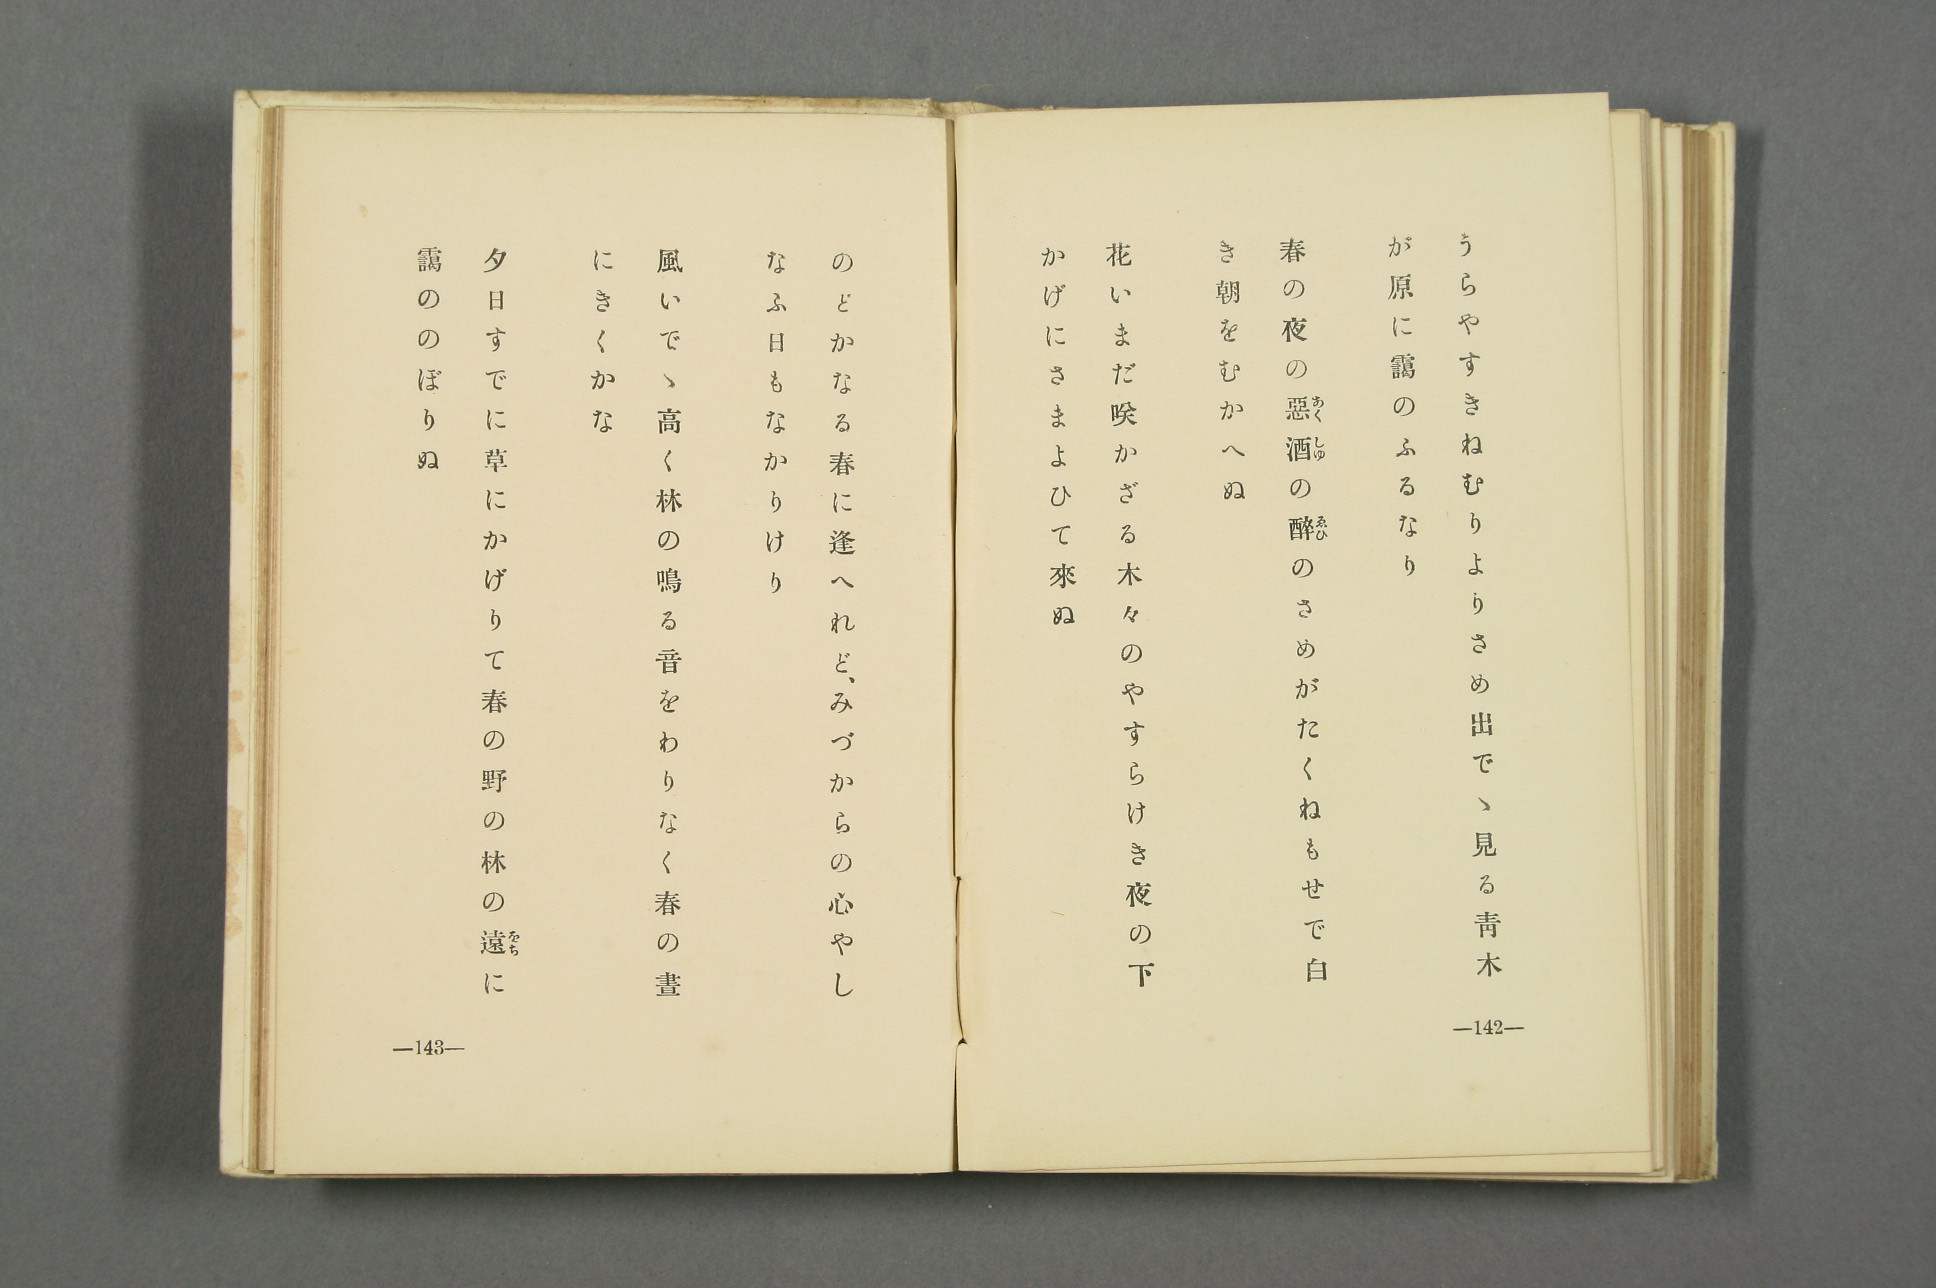 うらやすきねむりよりさめ出でゝ見る靑木
が原に靄のふるなり
春の夜の惡酒の醉のさめがたくねもせで白
き朝をむかへぬ
花いまだ咲かざる木々のやすらけき夜の下
かげにさまよひて來ぬ
—142—
のどかなる春に逢へれど、みづからの心やし
なふ日もなかりけり
風いでゝ高く林の鳴る音をわりなく春の晝
にきくかな
夕日すでに草にかげりて春の野の林の遠に
靄ののぼりぬ
—143—